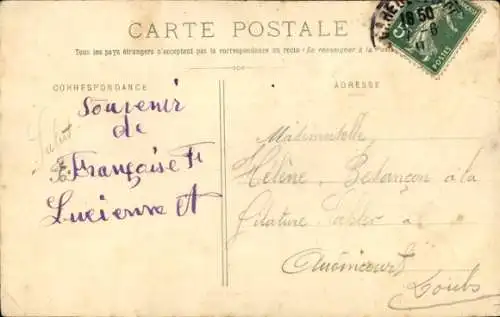 CARTE POSTALE
Tous les pays étrangers n'acceptent pas la correspondance au recto (Se renseigner à la Poste
CORRESPONDANCE
ADRESSE
Salut
Souvenir
de
Françoise F
Lucienne A
Mademoiselle
Hélène Besançon à la
filature à
Audincourt
Doubs
18 50
POSTES